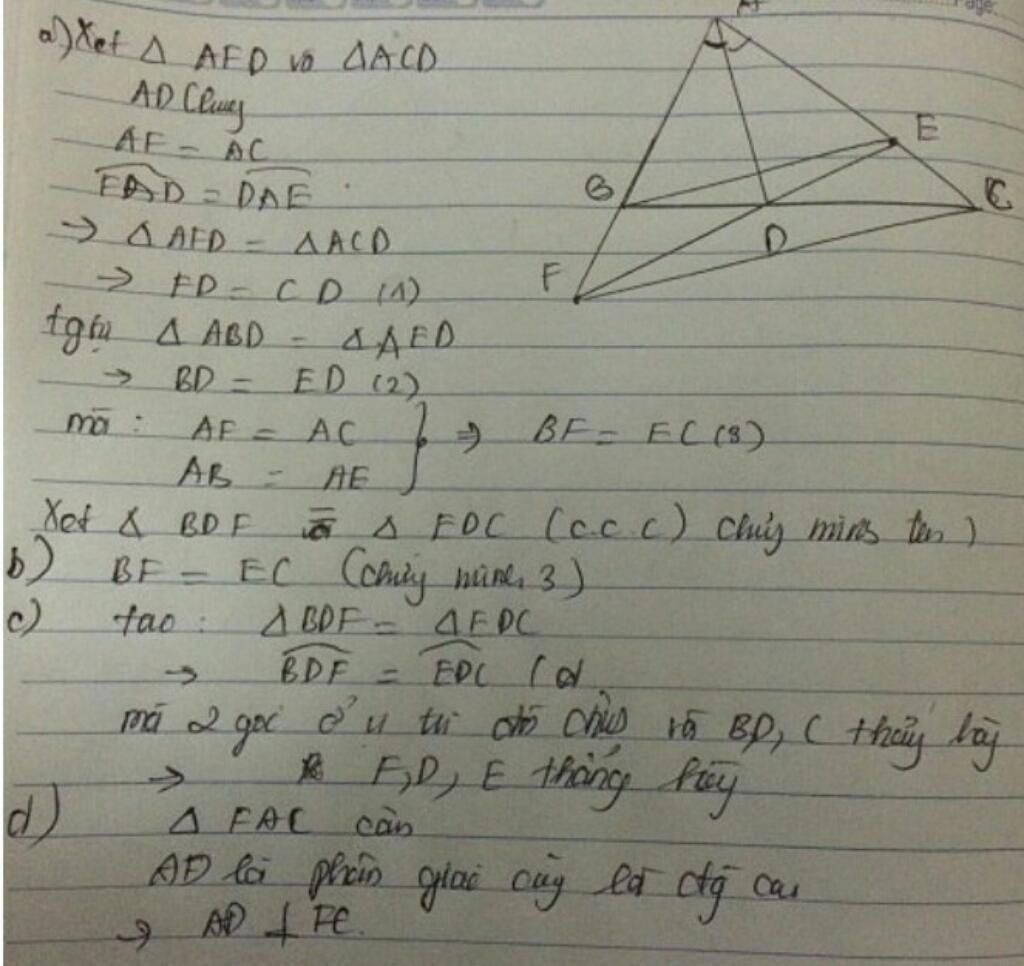 a) Xet Δ AFD và ΔACD
AD Chung
AF = AC
FAD = DAE
→ Δ AFD = ΔACD
→ FD = CD (1)
tgtự Δ ABD = Δ AED
→ BD = ED (2)
mà : AF = AC
AB = AE
⇒ BF = EC (3)
Xet Δ BDF = Δ EDC (c.c.c) chứng minh trên)
b) BF = EC (chứng minh 3)
c) ta có : ΔBDF = ΔEDC
→ BDF = EDC
mà 2 góc ở vị trí đối đỉnh và BD, C thẳng hàng
→ F, D, E thẳng hàng
d) Δ FAC cân
AD là phân giác cũng là đg cao
→ AD ⊥ FC.
A
B
E
C
D
F
Page: